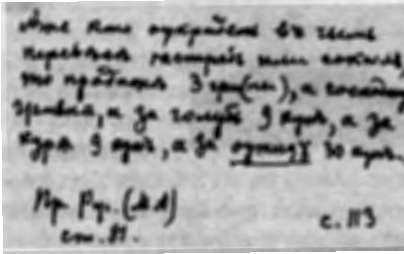 Аже кто украдет въ чьем
перевѣсѣ ястреб или сокол,
то продажѣ 3 грн(ны), а господину
гривна, а за голубь 9 кунъ, а за
куря 9 кунъ, а за 30 кунъ.
Пр. Рус.
ст. 81.
с. 113